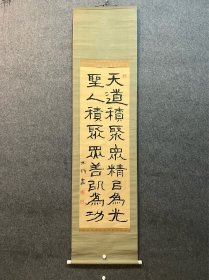 天道積聚衆精以為光
聖人積聚眾善以為功